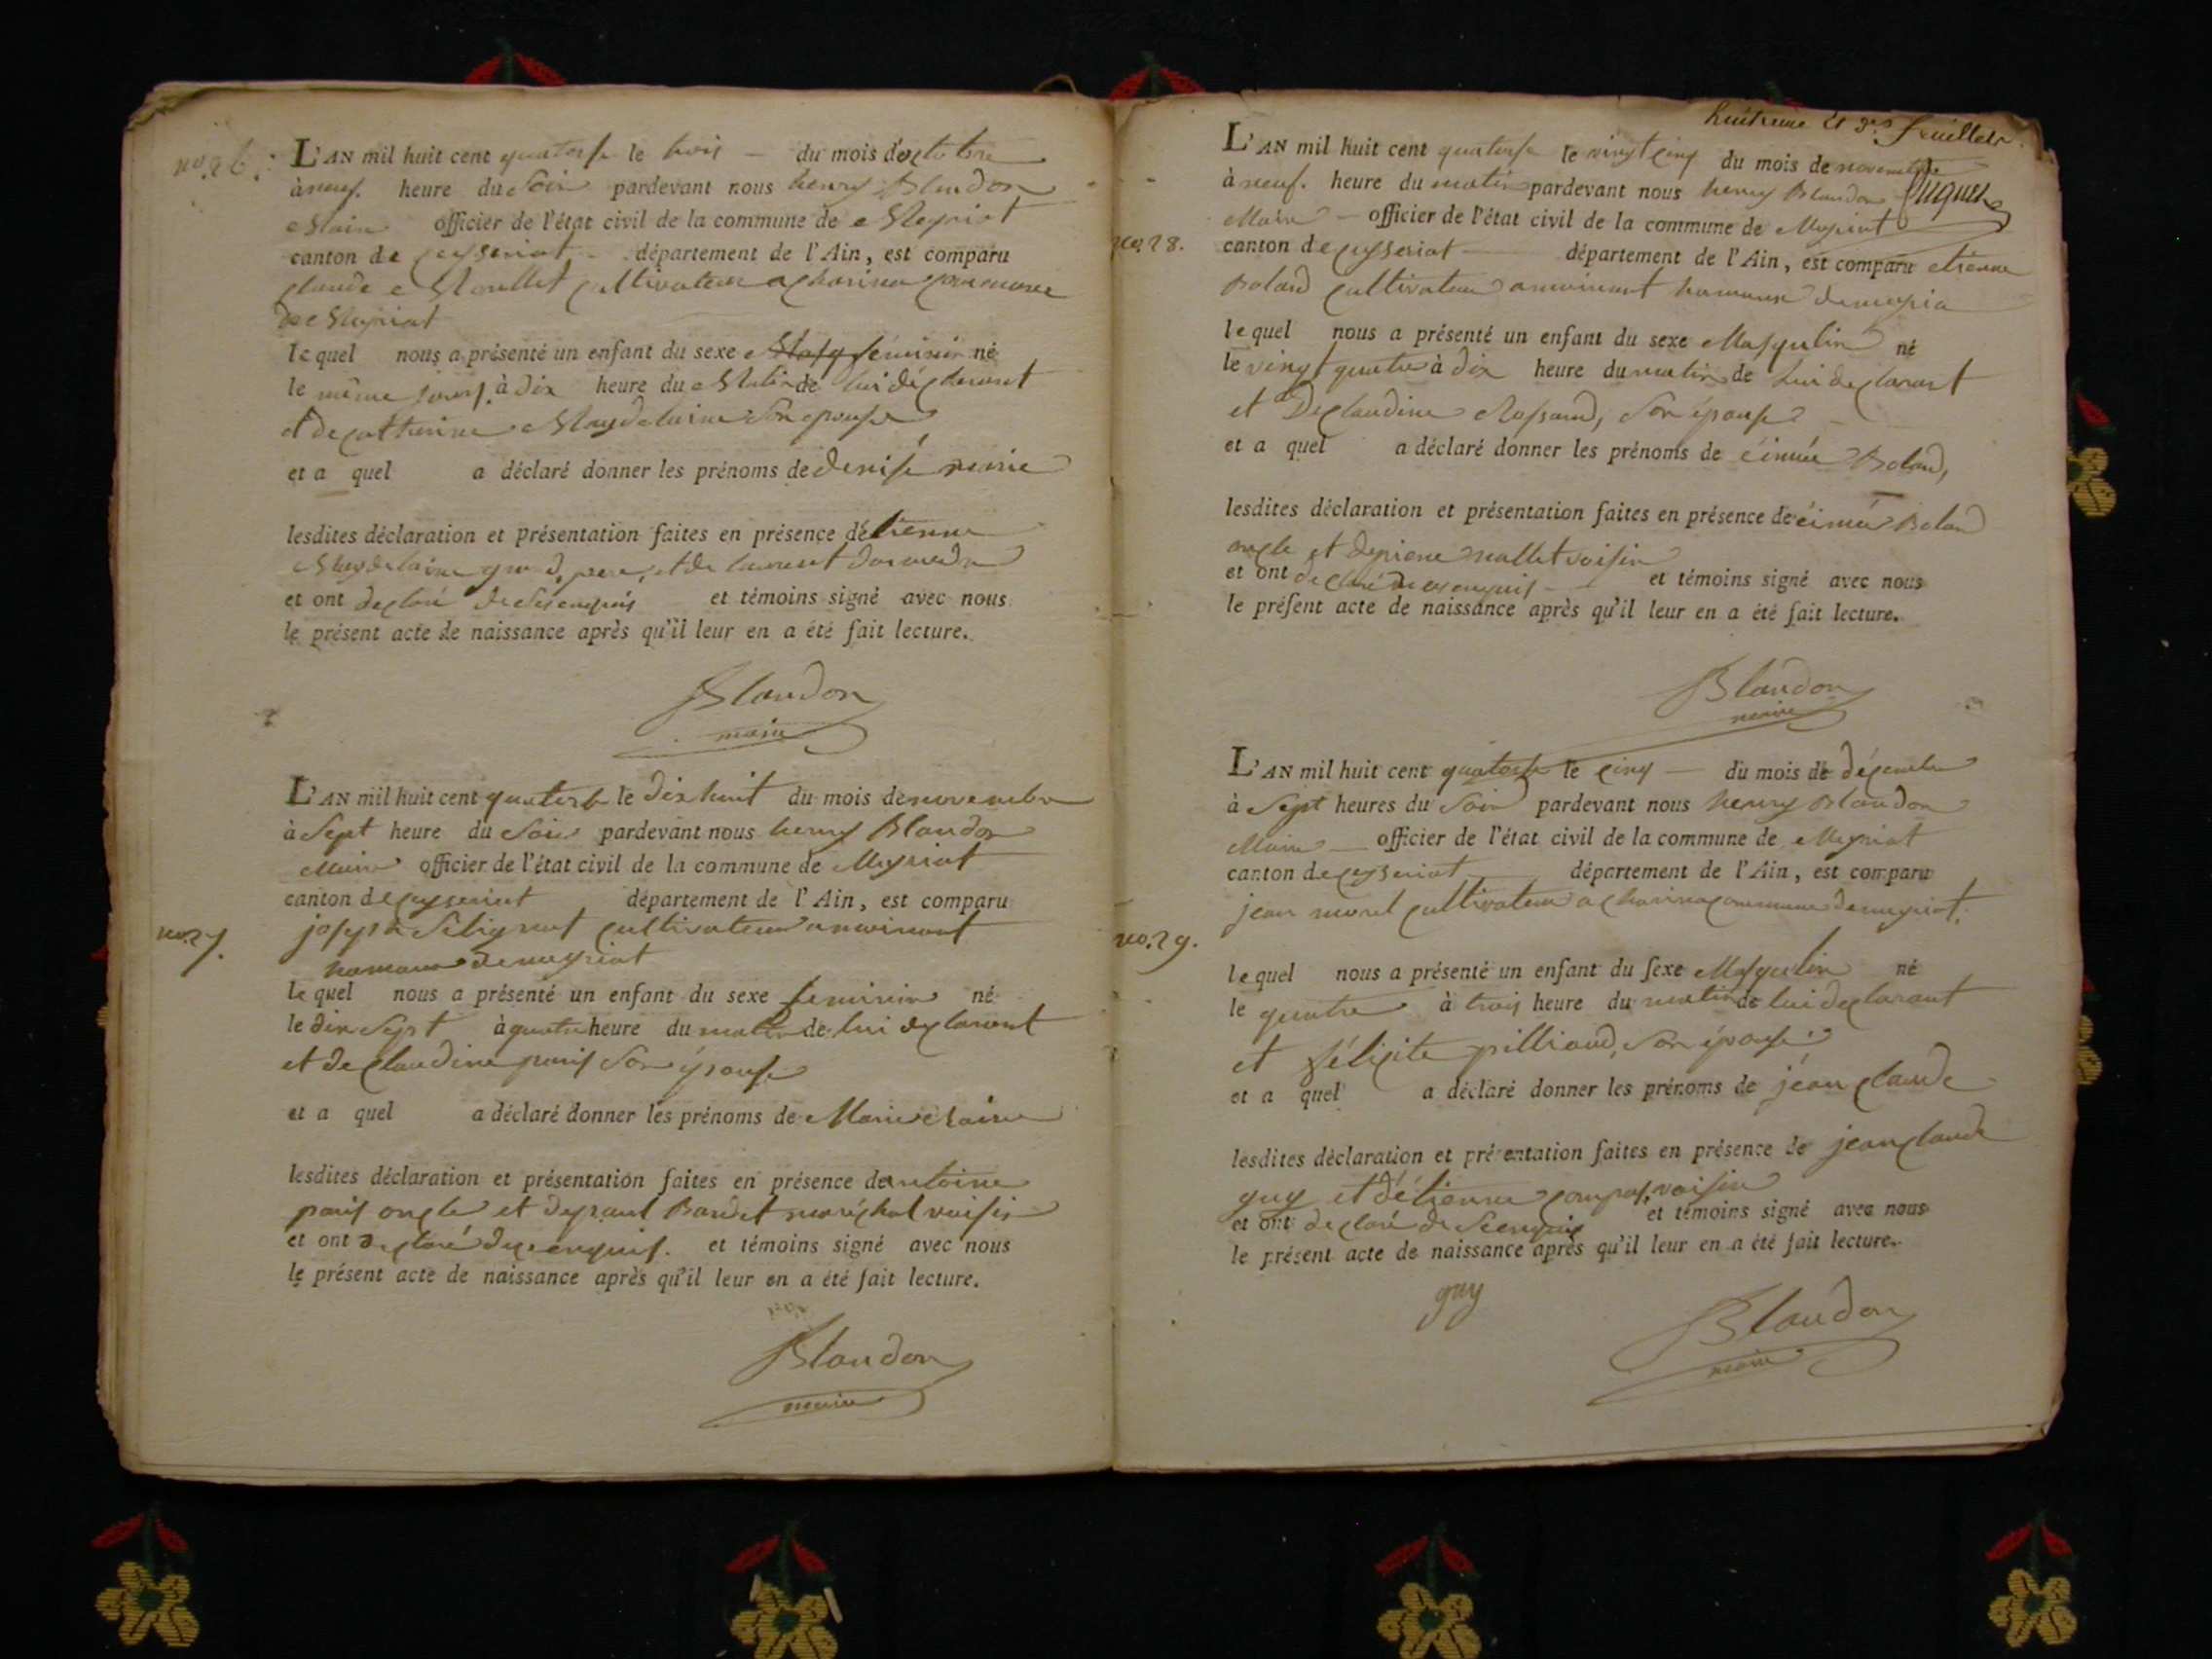 no. 26.
L'AN mil huit cent quatorse le trois — du mois d'octobre
à neuf. heure du Soir pardevant nous henry Blandon
Maire officier de l'état civil de la commune de Meyriat
canton de Ceyseriat — département de l'Ain, est comparu
Claude Morellet cultivateur a charinaz commune
de Meyriat
lequel nous a présenté un enfant du sexe féminin né
le même jours. à Dix heure du Matin de lui déclarant
et de catherine Magdelaine Son epouse
et a quel a déclaré donner les prénoms de denise
lesdites déclaration et présentation faites en présence détienne
Magdelaine grand pere, et de laurent
et ont declaré de Ses enquis et témoins signé avec nous
le présent acte de naissance après qu'il leur en a été fait lecture.
Blandon
maire
no. 27.
L'AN mil huit cent quatorse le Dix huit du mois de novembre
à Sept heure du Soir pardevant nous henry Blandon
Maire officier de l'état civil de la commune de Meyriat
canton de Ceyseriat département de l'Ain, est comparu
joseph cultivateur
hameau de meyriat
lequel nous a présenté un enfant du sexe feminin né
le dix Sept à quatre heure du matin de lui declarant
et de Claudine paris Son épouse
et a quel a déclaré donner les prénoms de Marie
lesdites déclaration et présentation faites en présence de antoine
paris oncle et de paul Bardet maréchal voisin
et ont declaré de ce enquis. et témoins signé avec nous
le présent acte de naissance après qu'il leur en a été fait lecture.
Blandon
maire
huitieme et feuillet.
no. 28.
L'AN mil huit cent quatorse le vingt cinq du mois de novembre
à neuf. heure du matin pardevant nous henry Blandon
Maire — officier de l'état civil de la commune de Meyriat
canton de Ceyseriat — département de l'Ain, est comparu etienne
Boland cultivateur hameau de meyria
lequel nous a présenté un enfant du sexe Masculin né
le vingt quatre à dix heure du matin de lui declarant
et De claudine Rossand, Son épouse
et a quel a déclaré donner les prénoms de éimée Boland,
lesdites déclaration et présentation faites en présence de éimée Boland
oncle et de piere mallet voisin
et ont declaré de ce enquis — et témoins signé avec nous
le présent acte de naissance après qu'il leur en a été fait lecture.
Blandon
maire
no. 29.
L'AN mil huit cent quatorse le cinq — du mois de décembre
à Sept heures du Soir pardevant nous henry Blandon
Maire — officier de l'état civil de la commune de Meyriat
canton de Ceyseriat — département de l'Ain, est comparu
jean morel cultivateur a charinaz commune de meyriat.
lequel nous a présenté un enfant du sexe Masculin né
le quatre à trois heure du matin de lui declarant
et félicite pilliand, Son épouse
et a quel a déclaré donner les prénoms de jéan claude
lesdites déclaration et présentation faites en présence de jean claude
guy et d'étienne compas, voisin
et ont declaré de ce enquis et témoins signé avec nous
le présent acte de naissance après qu'il leur en a été fait lecture.
guy
Blandon
maire